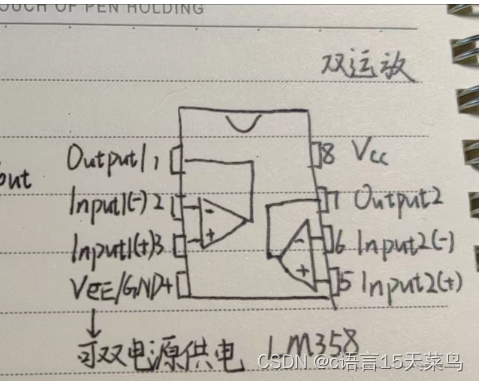 OUCH OF PEN HOLDING
双运放
out
Output1 1
8 Vcc
Input1(-) 2
7 Output2
Input1(+)3
6 Input2(-)
VEE/GND4
5 Input2(+)
- +
- +
可双电源供电 LM358
CSDN @c语言15天菜鸟